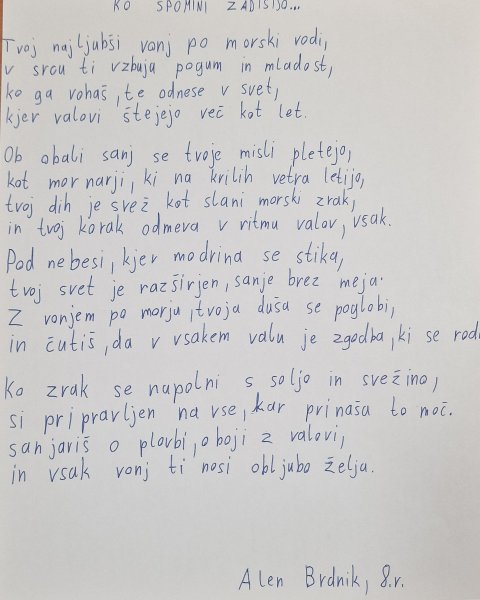 KO SPOMINI ZADIŠIJO...
Tvoj najljubši vonj po morski vodi,
v srcu ti vzbuja pogum in mladost,
ko ga vohaš, te odnese v svet,
kjer valovi štejejo več kot let.
Ob obali sanj se tvoje misli pletejo,
kot mornarji, ki na krilih vetra letijo,
tvoj dih je svež kot slani morski zrak,
in tvoj korak odmeva v ritmu valov, vsak.
Pod nebesi, kjer modrina se stika,
tvoj svet je razširjen, sanje brez meja.
Z vonjem po morju, tvoja duša se poglobi,
in čutiš, da v vsakem valu je zgodba, ki se rodi
Ko zrak se napolni s soljo in svežino,
si pripravljen na vse, kar prinaša to moč.
sanjariš o plovbi, o boji z valovi,
in vsak vonj ti nosi obljubo želja.
Alen Brdnik, 8.r.